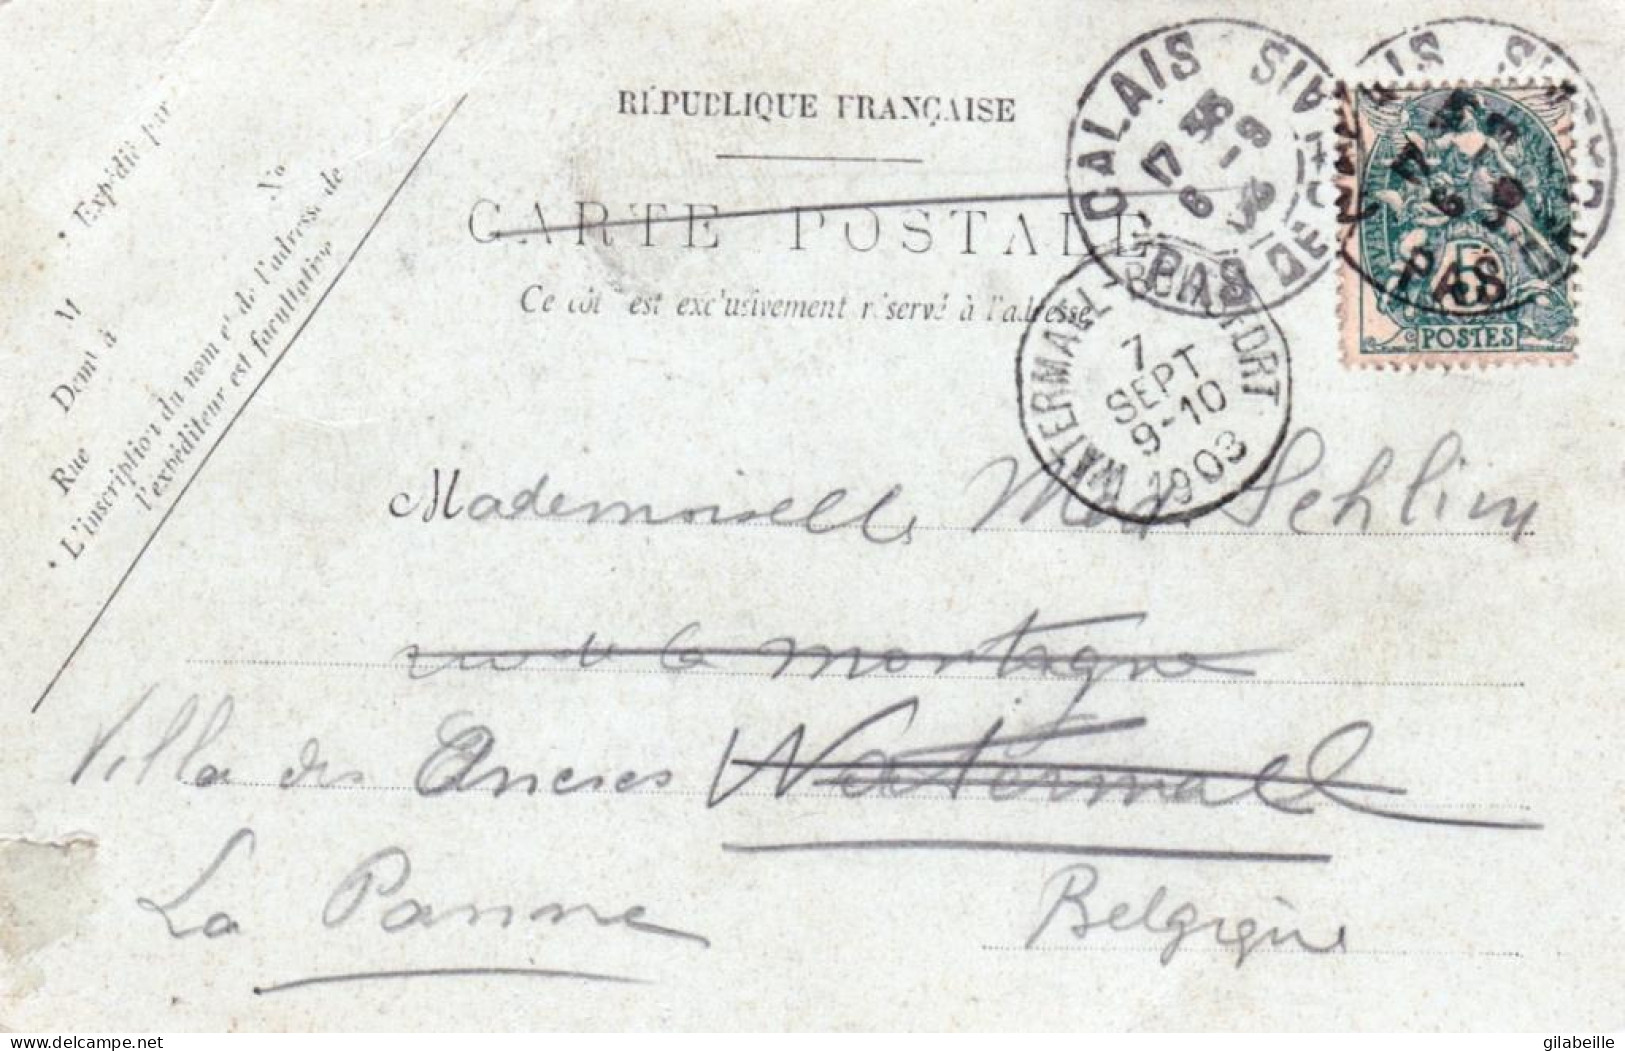 RÉPUBLIQUE FRANÇAISE
CARTE POSTALE
Ce côté est exclusivement réservé à l'adresse
Expédié par
M
Demt à
Rue No
L'inscription du nom et de l'adresse de
l'expéditeur est facultative
CALAIS
17 35
6 - 9
03
PAS DE CALAIS
CALAIS
PAS
5
POSTES
WATERMAEL-BOITSFORT
7
SEPT
9-10
1903
Mademoiselle Schlim
rue de la montagne
Villa des Ancres Watermael
La Panne Belgique
delcampe.net
gilabeille